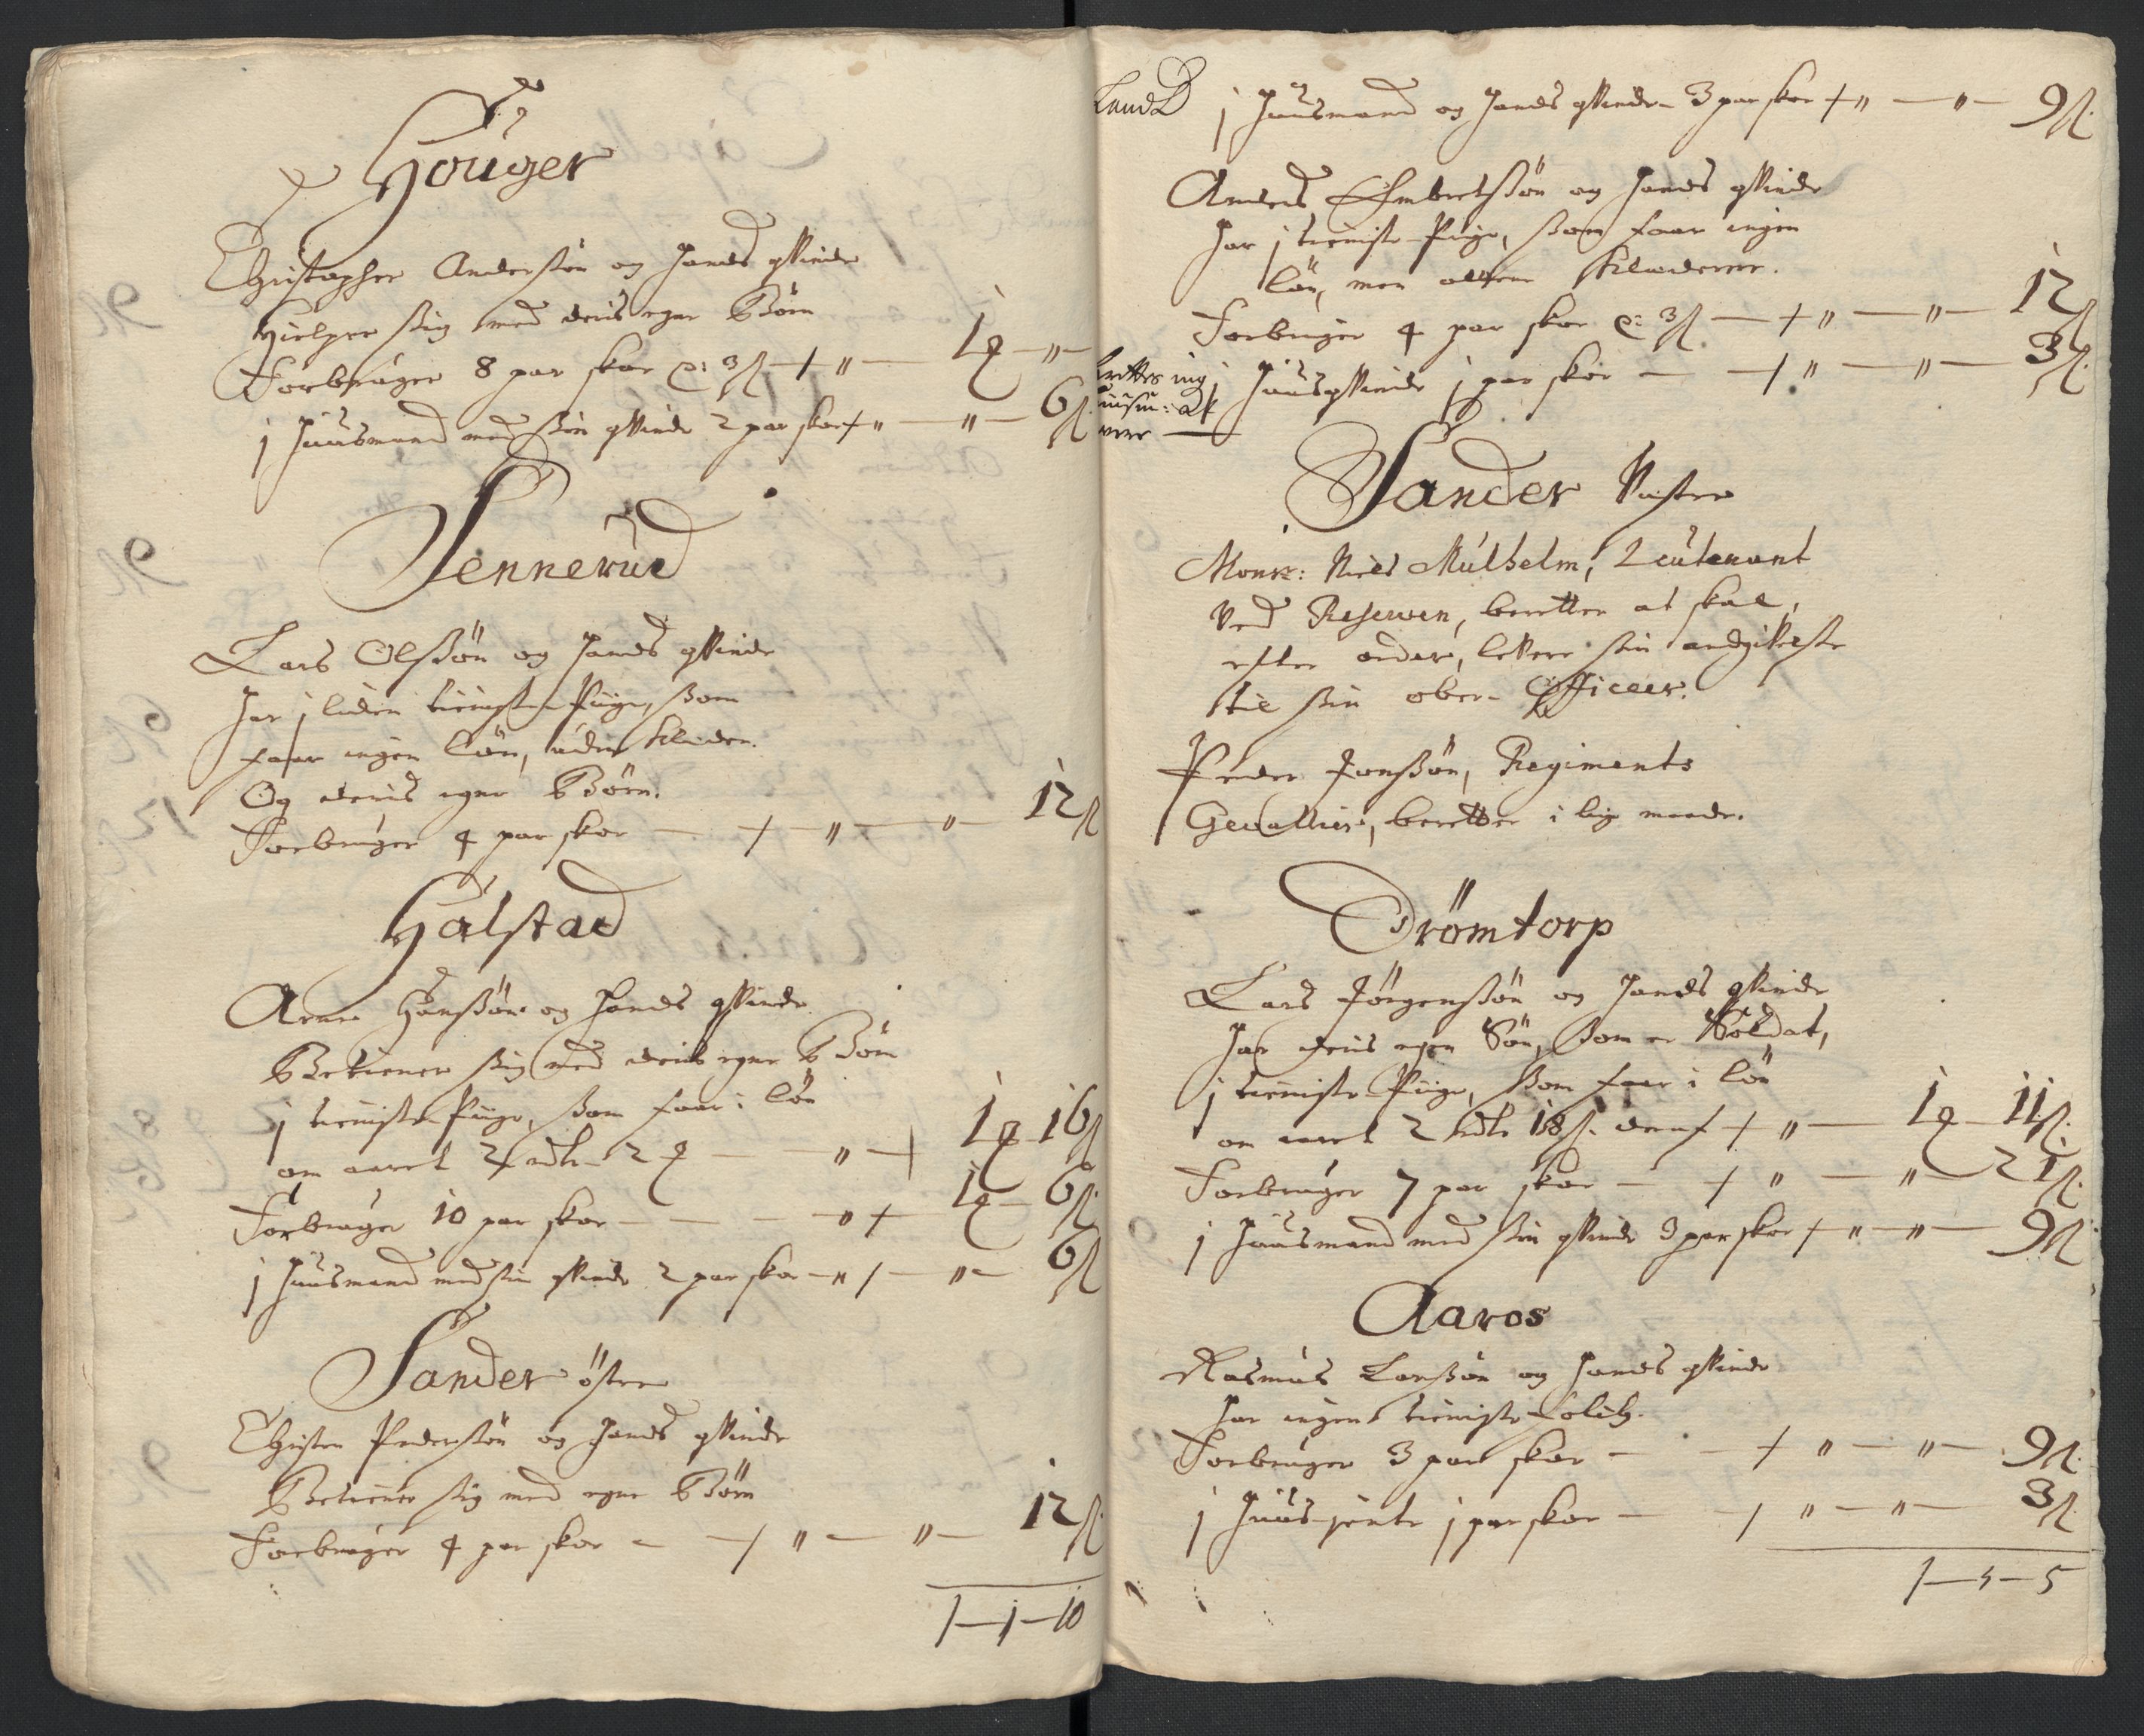 Houger
Christopher Anderssøn og hands qvinde
Hielper sig med deris egne Børn
Forbruger 8 par skoe p: 3 ß — + „ — 1 — „ —
j huusmand med sin qvinde 2 par skoe + „ — „ — 6 ß
Sennerud
Lars Olssøn og hands qvinde
har j liden tieniste Piige, som
faar ingen løn, uden klæder.
Og deris egne Børn.
Forbruger 4 par skoe — + — „ — „ — 12 ß
Halstad
Arne Hanssøn og hands qvinde
Betiener sig med deris egne Børn
j tieniste Piige, som faar i løn
om aaret 2 rdlr 2 — „ + 1 — 16 ß
Forbruger 10 par skoe — — — „ + 1 — 6 ß.
j huusmand med sin qvinde 2 par skoe — „ / — „ — 6 ß
Sander østre
Christen Pederssøn og hands qvinde
Betiener sig med egne Børn
Forbruger 4 par skoe — + „ — „ — 12 ß.
1 — 1 — 10
j huusmand og hands qvinde — 3 par skoe + „ — „ — 9 ß.
Anders Embretssøn og hands qvinde
har j tieniste Piige, som faar ingen
løn, men allene klæderne.
Forbruger 4 par skoe p: 3 ß — + „ — „ — 12 ß
j huusqvinde j par skoe — + „ — „ — 3 ß.
Sander Vestre
Monsr: Niels Mulhelm, Leutenant
ved Reserven, beretter at skal,
efter order, levere sin andgivelse
til sin ober-Officeer.
Peder Jonssøn, Regiments
Gewallier, beretter i lige maade.
Drømtorp
Lars Jørgenssøn og hands qvinde
har deris egen Søn, som er Soldat,
j tieniste Piige, som faar i løn
om aaret 2 rdlr 18 ß. deraf + „ — 1 — 11 ß.
Forbruger 7 par skoe — + „ — „ — 21 ß.
j huusmand med sin qvinde 3 par skoe + „ — „ — 9 ß
Aaros
Rasmus Larssøn og hands qvinde
har ingen tieniste folch.
Forbruger 3 par skoe — + „ — „ — 9 ß.
j huus-jente j par skoe — + „ — „ — 3 ß.
1 — 3 — 5